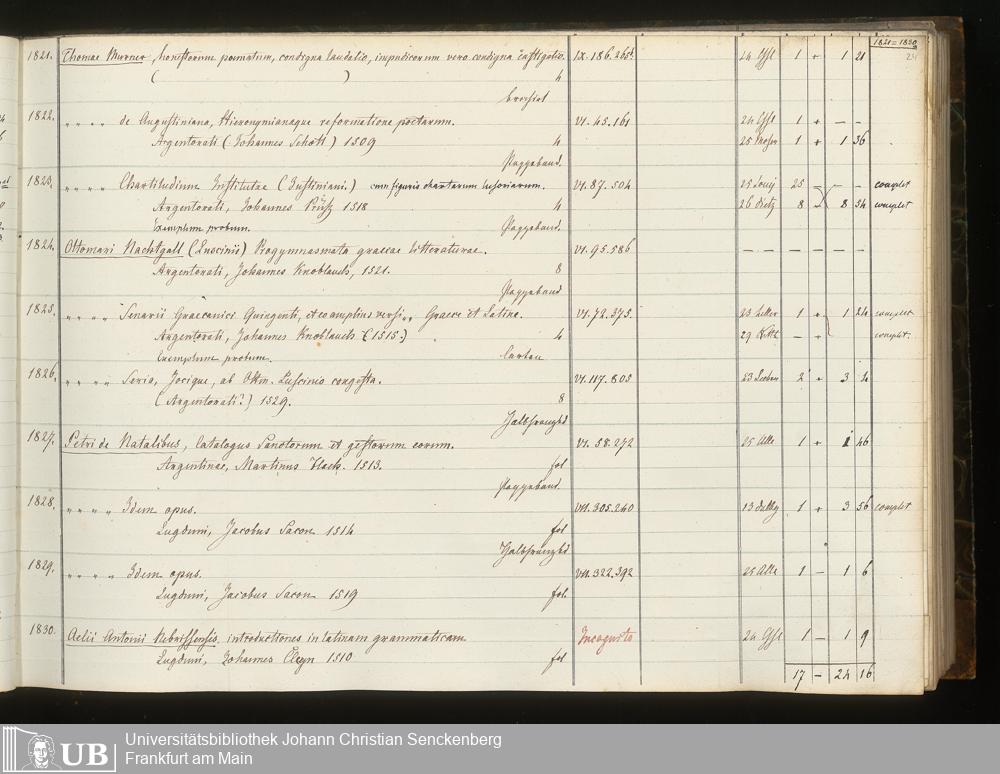 1821=1830
1821. Thomae Murner, honestorum poematum, condigna laudatio, impudicorum vero condigna castigatio. IX.186.265 24 1 + 1 21
( ) 4
broschirt
1822. " " " " de Augustiniana, Hieronymianaque reformatione poetarum. VI.45.161 24 1 + — —
Argentorati (Johannes Schott) 1509 4 25 Moser 1 + 1 36
Pappeband.
1823. " " " " Chartiludium Institutae (Justiniani.) cum figuris chartarum lusoriarum. VI.87.504 25 — — — complet
Argentorati, Johannes Prüss 1518 4 26 Dietz 8 8 54 complet
Exemplum probum. Pappeband.
1824. Ottomari Nachtgall (Luscinii) Progymnasmata graecae litteraturae. VI.95.586 — — — — — —
Argentorati, Johannes Knoblauch, 1521. 8
Pappeband
1825. " " " " Senarii Graecanici Quingenti, et eo amplius versi, Graece et Latine. VI.72.375. 23 1 + 1 24 complet
Argentorati, Johannes Knoblauch (1515.) 4 29 — + complet.
Exemplum probum. Carton
1826. " " " " Seria, Jocique, ab Ottm. Luscinio congesta. VI.117.803 23 2 + 3 4
(Argentorati?) 1529. 8
Halbfranzbd
1827. Petri de Natalibus, Catalogus Sanctorum et gestorum eorum. VI.58.272 25 1 + 1 46
Argentinae, Martinus Flach. 1513. fol
Pappeband.
1828. " " " " Idem opus. VII.305.240 13 1 + 3 56 complet
Lugduni, Jacobus Sacon 1514 fol
Halbfranzbd
1829. " " " " Idem opus. VII.322.392 25 1 — 1 6
Lugduni, Jacobus Sacon 1519 fol.
1830. Aelii Antonii Nebrissensis. introductiones in latinam grammaticam Incognito 24 1 — 1 9
Lugduni, Johannes Cleyn 1510 fol
17 — 24 16
UB
Universitätsbibliothek Johann Christian Senckenberg
Frankfurt am Main